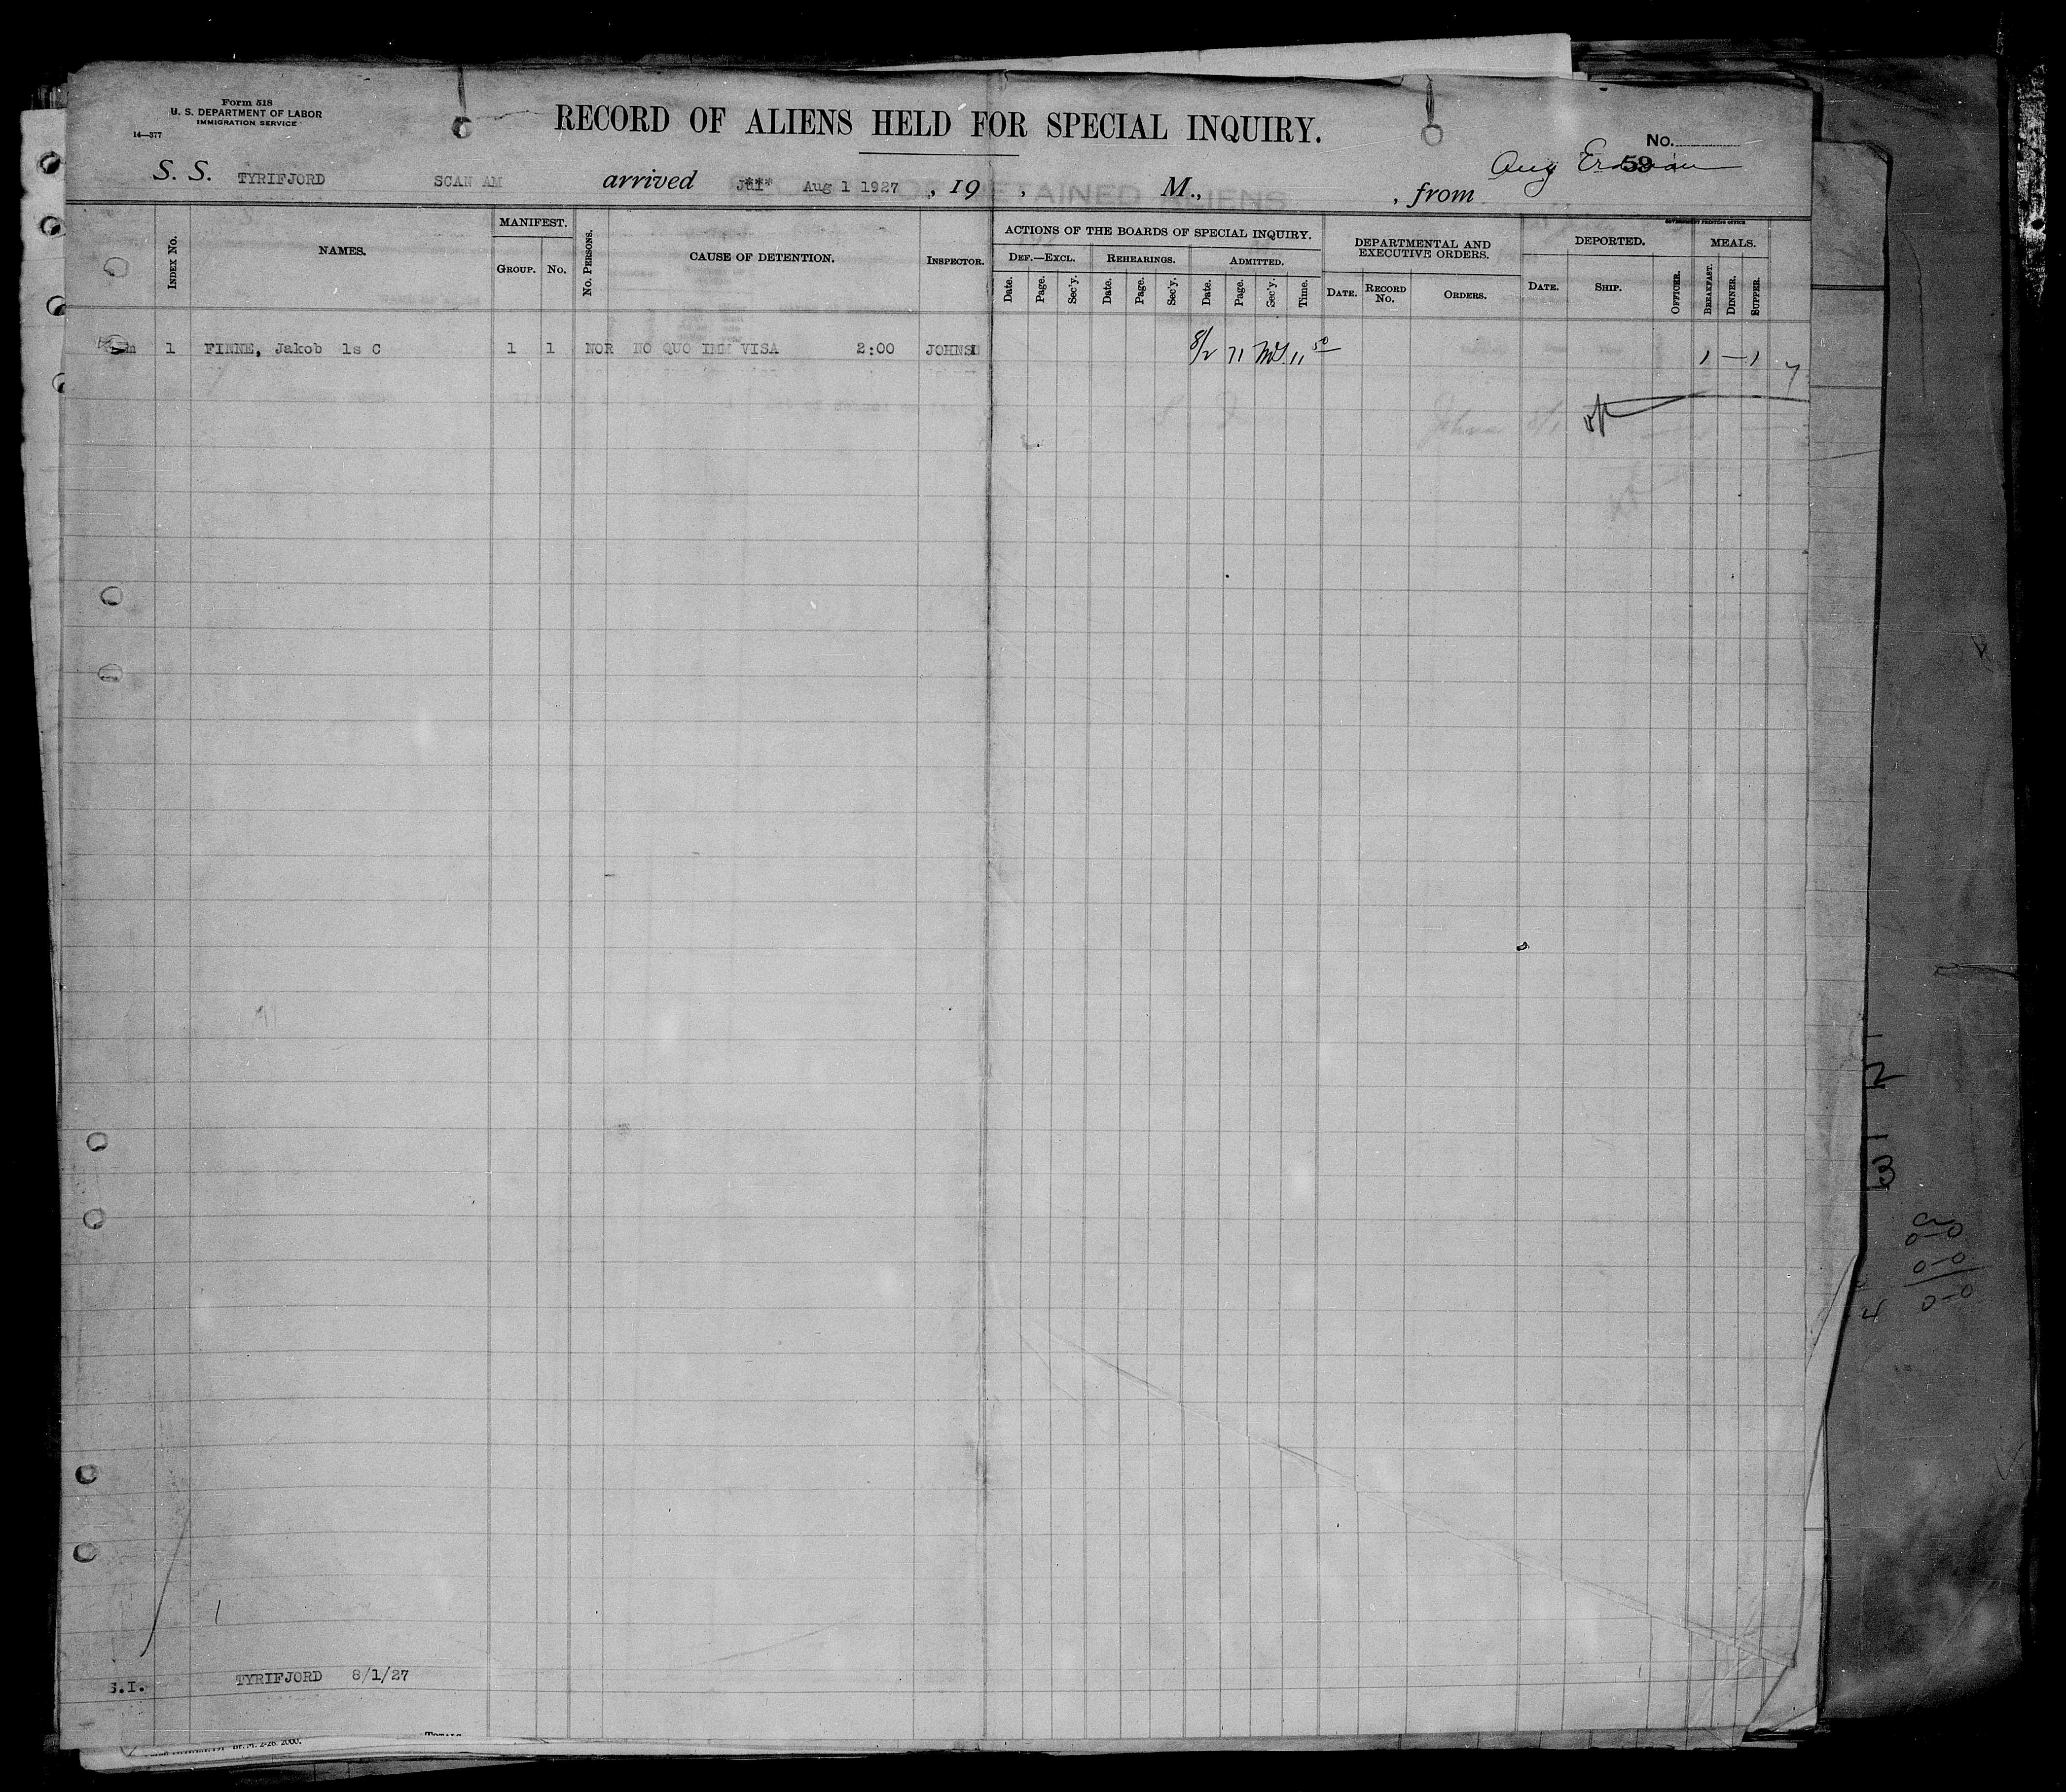 Form 518
U. S. DEPARTMENT OF LABOR
IMMIGRATION SERVICE
14—377
RECORD OF ALIENS HELD FOR SPECIAL INQUIRY.
No.
59
Aug
S. S. TYRIFJORD SCAN AM arrived Aug 1 1927 , 19 , M., , from
DETAINED ALIENS
GOVERNMENT PRINTING OFFICE
INDEX No. NAMES. MANIFEST. GROUP. No. No. PERSONS. CAUSE OF DETENTION. INSPECTOR.
ACTIONS OF THE BOARDS OF SPECIAL INQUIRY.
DEF.—EXCL. Date. Page. Sec'y. REHEARINGS. Date. Page. Sec'y. ADMITTED. Date. Page. Sec'y. Time.
DEPARTMENTAL AND EXECUTIVE ORDERS. DATE. RECORD No. ORDERS.
DEPORTED. DATE. SHIP. OFFICER. MEALS. BREAKFAST. DINNER. SUPPER.
1 FINNE, Jakob 1s C 1 1 NOR NO QUO IMM VISA 2:00 JOHNSN 8/2 71 11 50 1 — 1
S.I. TYRIFJORD 8/1/27